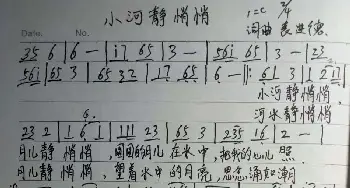 小河静悄悄
1=C 2/4
Date. No. 词曲 袁进德
35 6 | 6 — | i7 65 | 3 — | 56i 65 | 3 — | 23
56i | 65 3 | 65 32 | 17 65 | 6 — :‖: 61 3 | 1 217
小河静悄悄,
河水静悄悄
6.
23 2 | 1 6 1 | 111 23 | 65 3 | 235 16 | 2 — |
月儿静悄悄, 圆圆的月儿在水中, 把我的心儿照
月儿静悄悄, 望着水中的月亮, 思念涌如潮